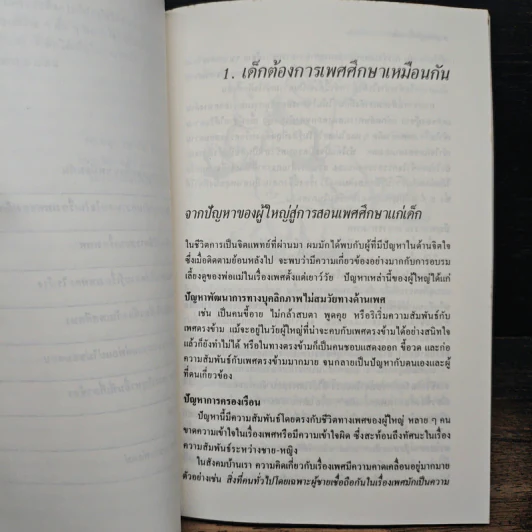 1. เด็กต้องการเพศศึกษาเหมือนกัน
จากปัญหาของผู้ใหญ่สู่การสอนเพศศึกษาแก่เด็ก
ในชีวิตการเป็นจิตแพทย์ที่ผ่านมา ผมมักได้พบกับผู้ที่มีปัญหาในด้านจิตใจ
ซึ่งเมื่อติดตามย้อนหลังไป จะพบว่ามีความเกี่ยวข้องอย่างมากกับการอบรม
เลี้ยงดูของพ่อแม่ในเรื่องเพศตั้งแต่เยาว์วัย ปัญหาเหล่านี้ของผู้ใหญ่ได้แก่
ปัญหาพัฒนาการทางบุคลิกภาพไม่สมวัยทางด้านเพศ
เช่น เป็นคนขี้อาย ไม่กล้าสบตา พูดคุย หรือริเริ่มความสัมพันธ์กับ
เพศตรงข้าม แม้จะอยู่ในวัยผู้ใหญ่ที่น่าจะคบกับเพศตรงข้ามได้อย่างสนิทใจ
แล้วก็ยังทำไม่ได้ หรือในทางตรงข้ามก็เป็นคนชอบแสดงออก ขี้อวด และก่อ
ความสัมพันธ์กับเพศตรงข้ามมากมาย จนกลายเป็นปัญหากับตนเองและผู้
ที่ตนเกี่ยวข้อง
ปัญหาการครองเรือน
ปัญหานี้มีความสัมพันธ์โดยตรงกับชีวิตทางเพศของผู้ใหญ่ หลาย ๆ คน
ขาดความเข้าใจในเรื่องเพศหรือมีความเข้าใจผิด ซึ่งสะท้อนถึงทัศนะในเรื่อง
ความสัมพันธ์ระหว่างชาย-หญิง
ในสังคมบ้านเรา ความคิดเกี่ยวกับเรื่องเพศมีความคาดเคลื่อนอยู่มากมาย
ตัวอย่างเช่น สิ่งที่คนทั่วไปโดยเฉพาะผู้ชายเชื่อถือกันในเรื่องเพศมักเป็นความ